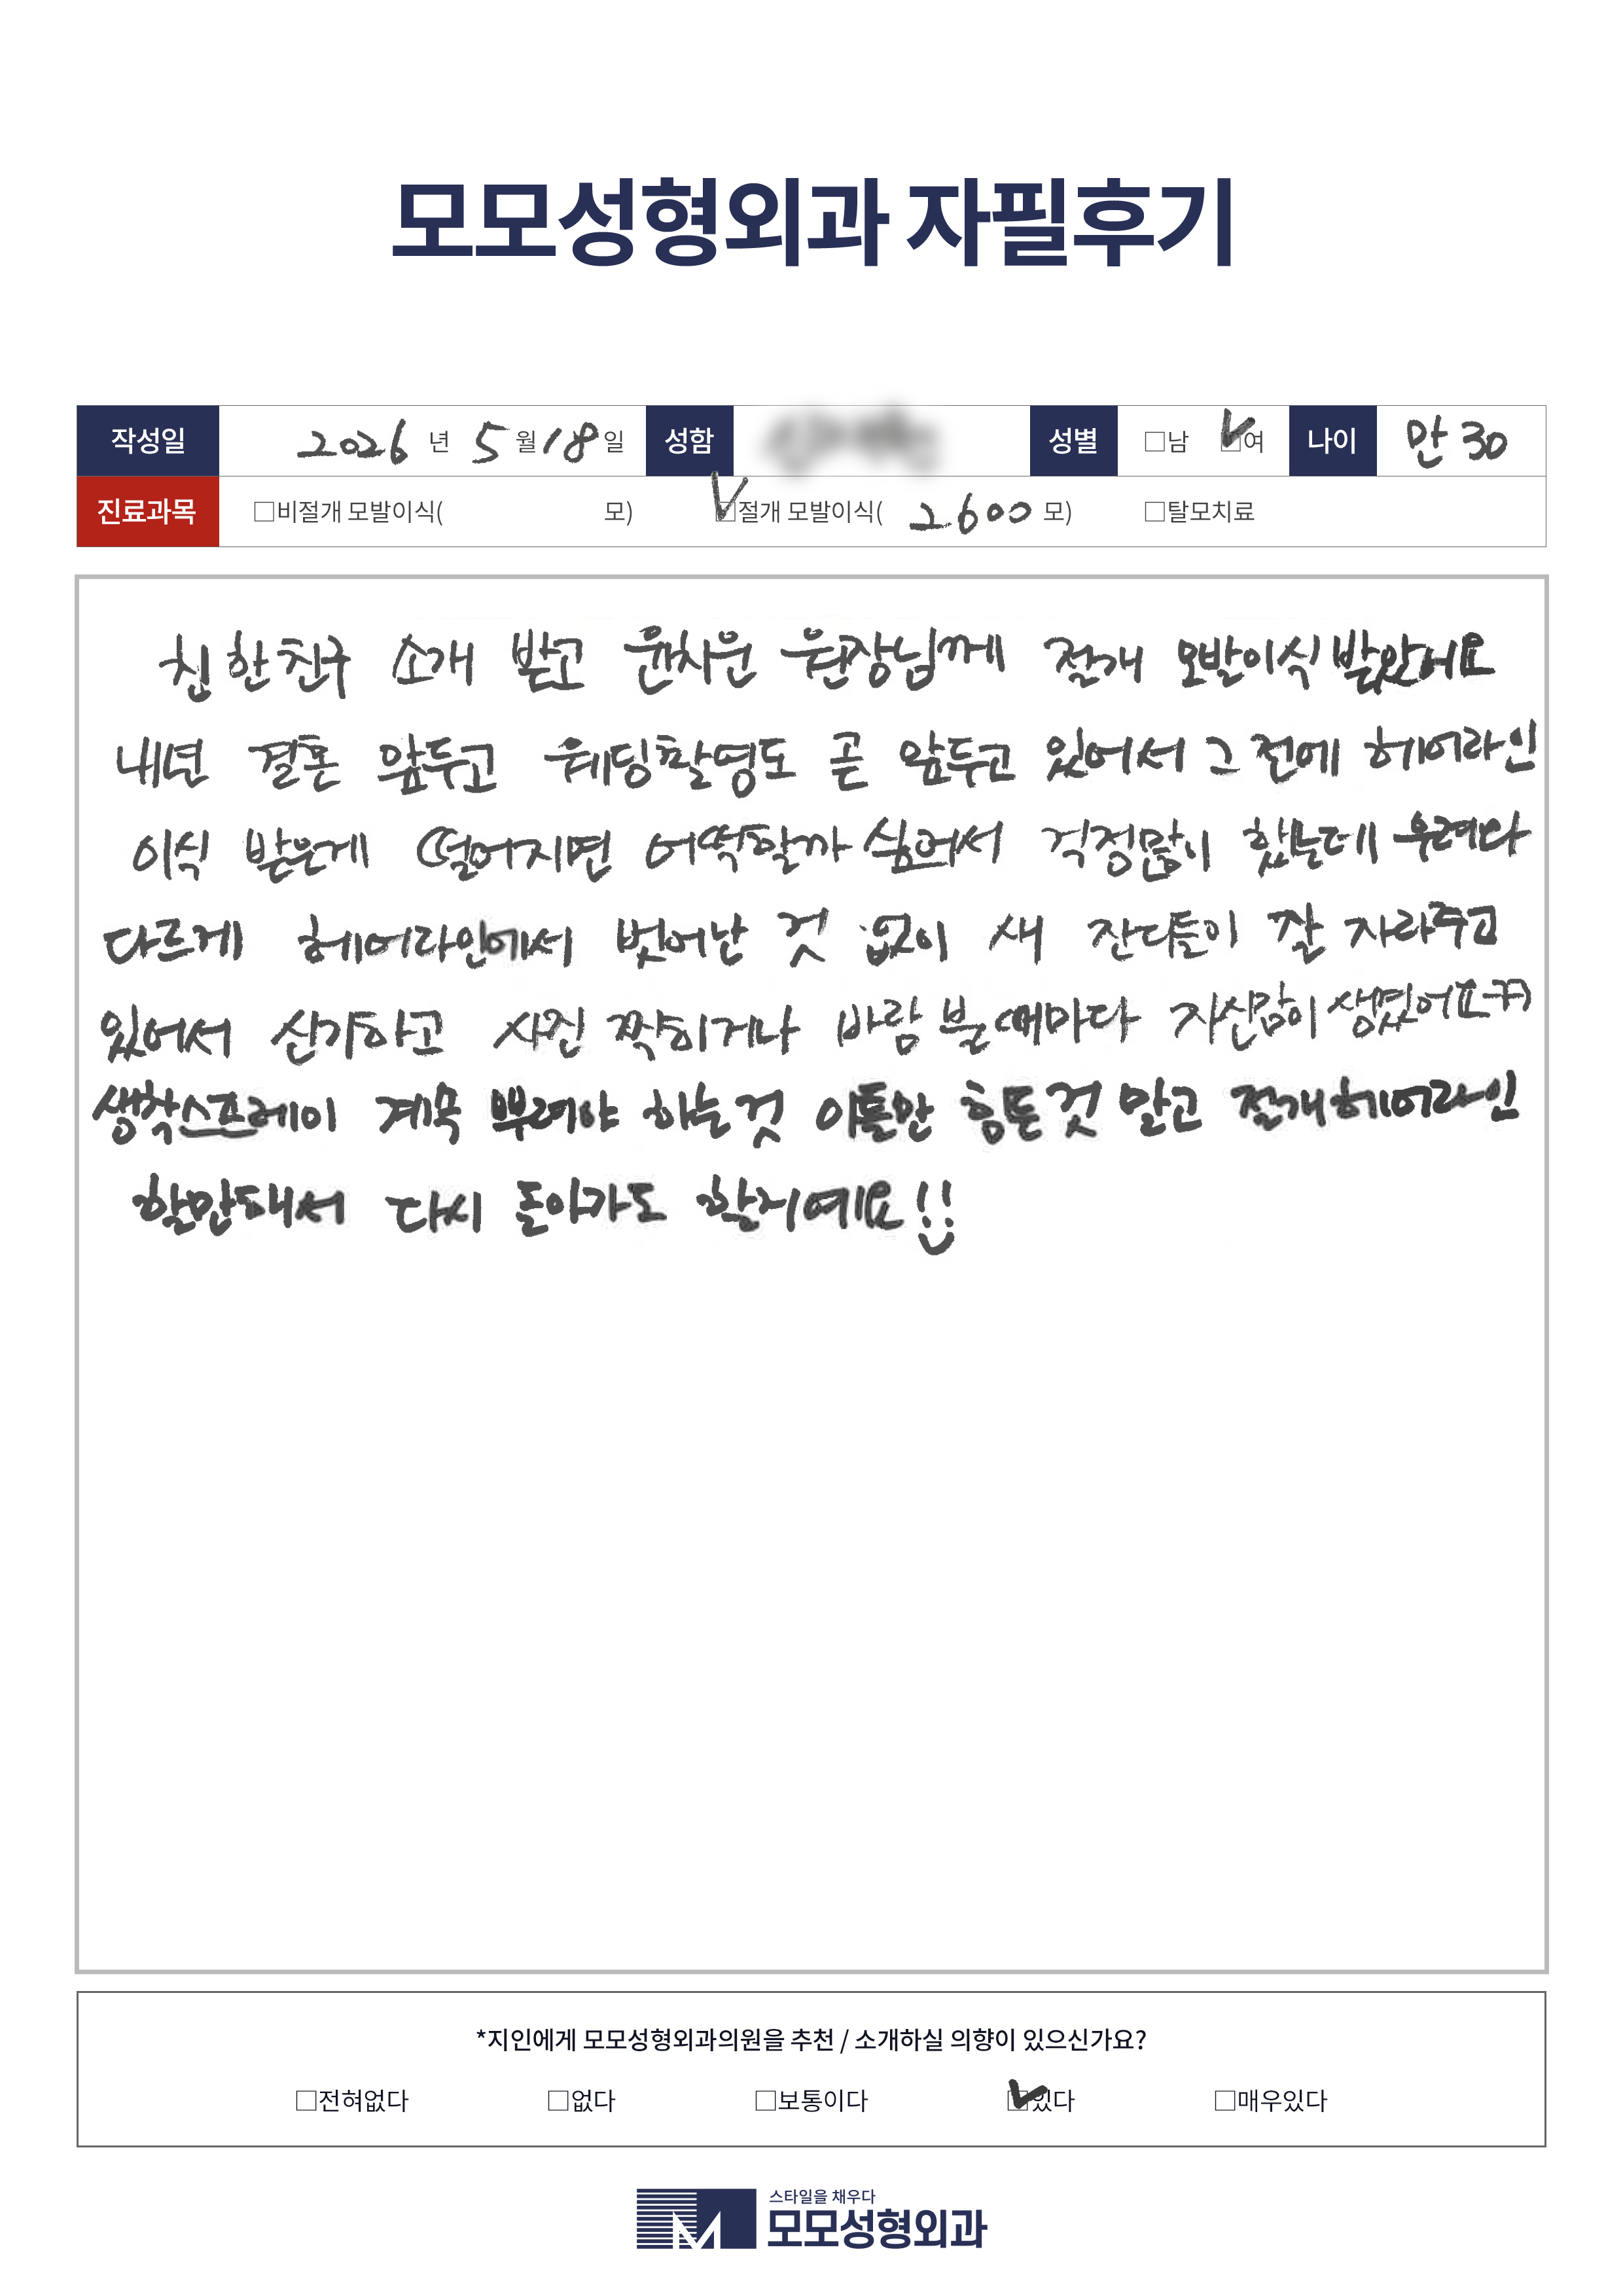 모모성형외과 자필후기
작성일 2026 년 5 월 18 일 성함 성별 □남 ☑여 나이 만 30
진료과목 □비절개 모발이식( 모) ☑절개 모발이식( 2600 모) □탈모치료
친한친구 소개 받고 윤차운 원장님께 절개 모발이식 받았어요
내년 결혼 앞두고 웨딩촬영도 곧 앞두고 있어서 그 전에 헤어라인
이식 받은게 떨어지면 어떡할까 싶어서 걱정많이 했는데 우려와
다르게 헤어라인에서 벗어난 것 없이 새 잔디들이 잘 자라주고
있어서 신기하고 사진 찍히거나 바람 불때마다 자신감이 생겼어요ㅠㅠ
생착스프레이 계속 뿌려야 하는것 이틀만 힘든것 말고 절개헤어라인
할만해서 다시 돌아가도 할거예요!!
*지인에게 모모성형외과의원을 추천 / 소개하실 의향이 있으신가요?
□전혀없다 □없다 □보통이다 ☑있다 □매우있다
스타일을 채우다
모모성형외과